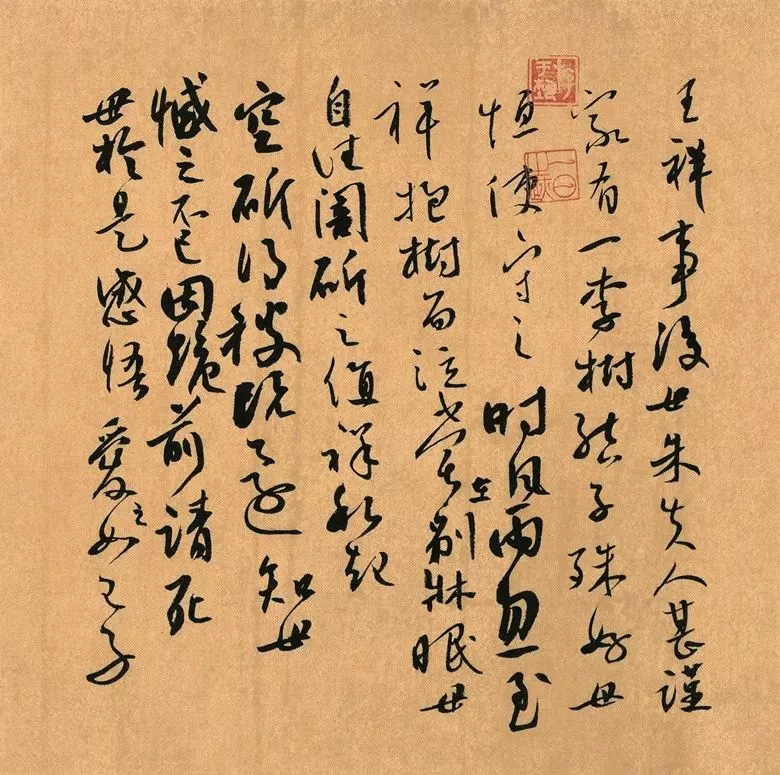 王祥事後母朱夫人甚謹
家有一李樹結子殊好母
恒使守之時風雨忽至
祥抱樹而泣嘗在別牀眠母
自往闇斫之值祥私起
空斫得被既還知母
憾之不已因跪前請死
母於是感悟愛之如己子